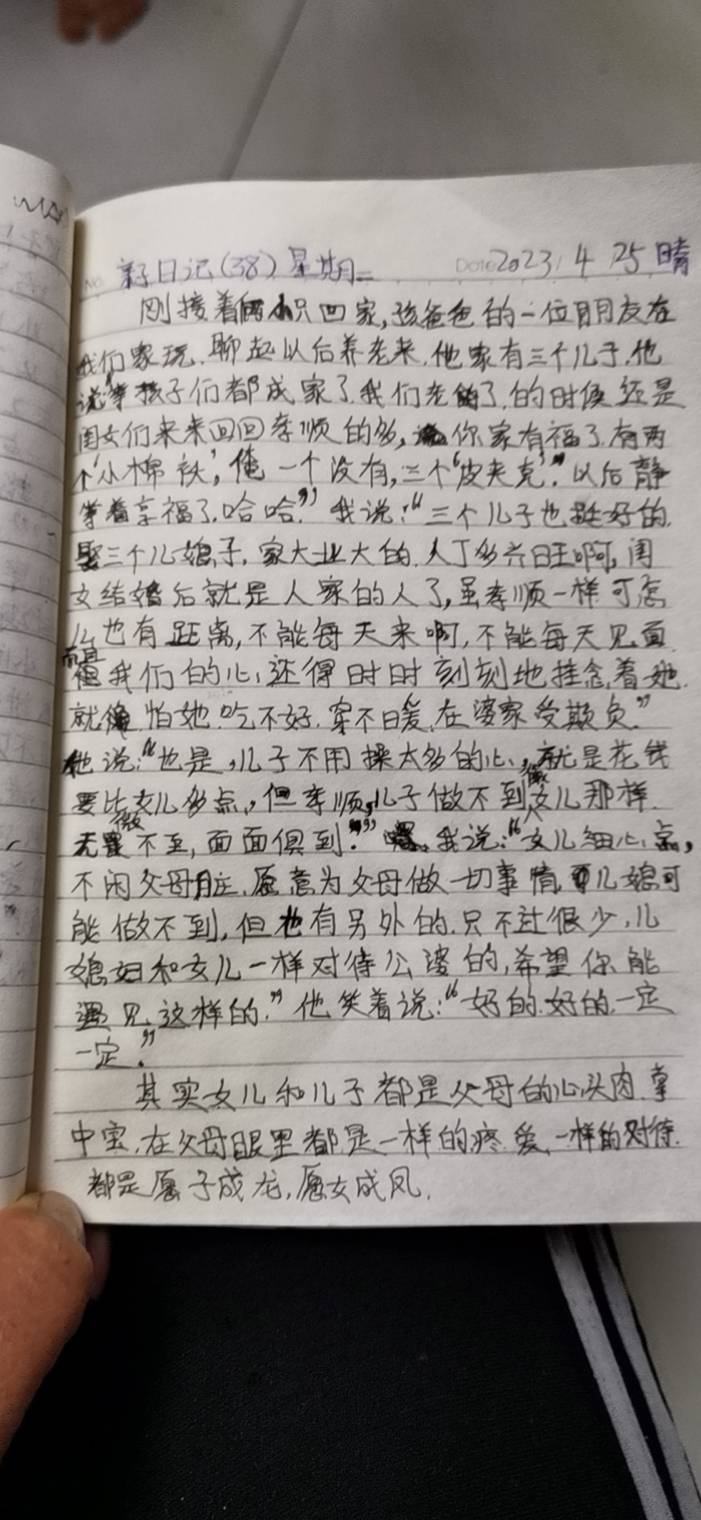 亲子日记(38) 星期二 DATE 2023 4 25 晴
刚接着俩小只回家,孩爸爸的一位朋友在
我们家玩,聊起以后养老来,他家有三个儿子,他
说等孩子们都成家了,我们老了的时候还是
闺女们来来回回孝顺的多,你家有福了,有两
个“小棉袄”,俺一个没有,三个“皮夹克”,以后静
等着享福了,哈哈”我说:“三个儿子也挺好的
娶三个儿媳子,家大业大的,人丁多兴旺啊,闺
女结婚后就是人家的人了,虽孝顺一样可怎
么也有距离,不能每天来啊,不能每天见面
而且我们的心,还得时时刻刻地挂念着她
就怕她吃不好,穿不暖,在婆家受欺负”
他说:“也是,儿子不用操太多的心,就是花钱
要比女儿多点,但孝顺,儿子做不到像女儿那样
无微不至,面面俱到。”我说:“女儿细心点,
不闲父母脏,愿意为父母做一切事情,儿媳可
能做不到,但也有另外的,只不过很少,儿
媳妇和女儿一样对待公婆的,希望你能
遇见这样的。”他笑着说:“好的,好的,一定
一定。”
其实女儿和儿子都是父母的心头肉,掌
中宝,在父母眼里都是一样的疼爱,一样的对待
都是愿子成龙,愿女成凤.